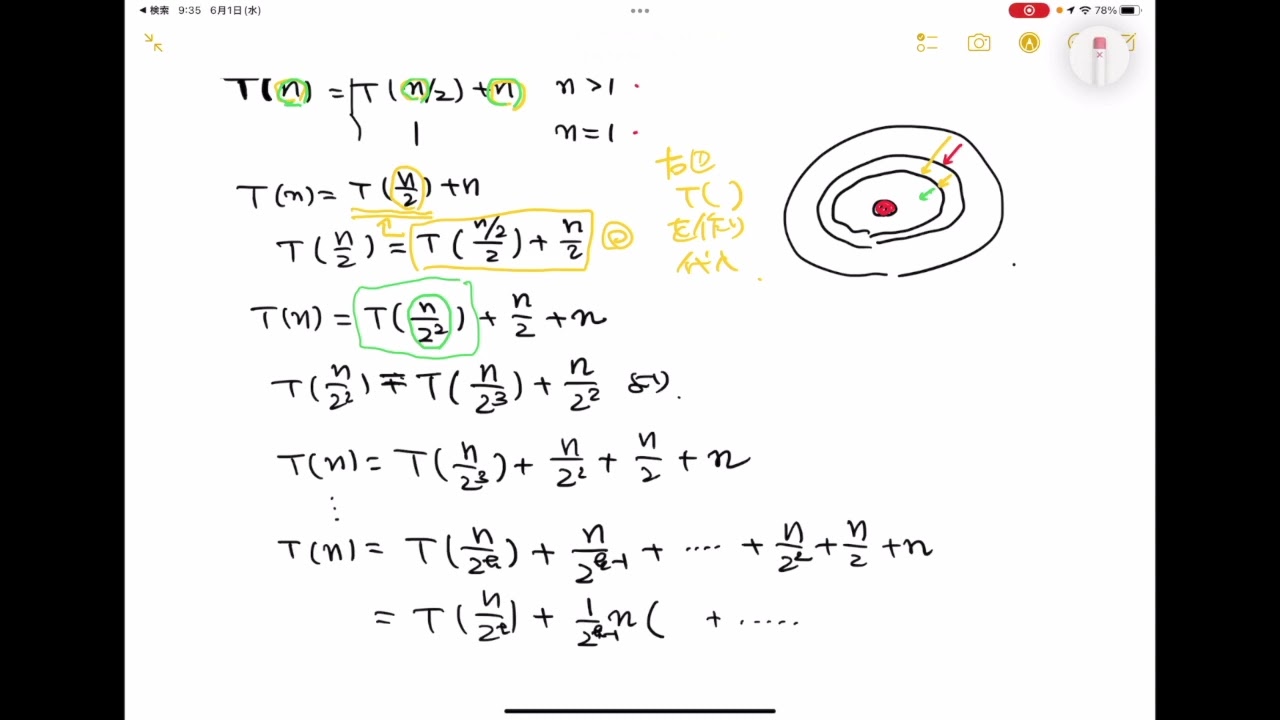 ◀ 検索 9:35 6月1日(水)
78%
T(n) = T(n/2) + n n > 1
1 n = 1
T(n) = T(n/2) + n
T(n/2) = T((n/2)/2) + n/2 ②
右①
T( )
を作り
代入
T(n) = T(n/2²) + n/2 + n
T(n/2²) = T(n/2³) + n/2² より.
T(n) = T(n/2³) + n/2² + n/2 + n
⋮
T(n) = T(n/2ᵏ) + n/2ᵏ⁻¹ + ···· + n/2² + n/2 + n
= T(n/2ᵏ) + 1/2ᵏ⁻¹ n ( + ·····